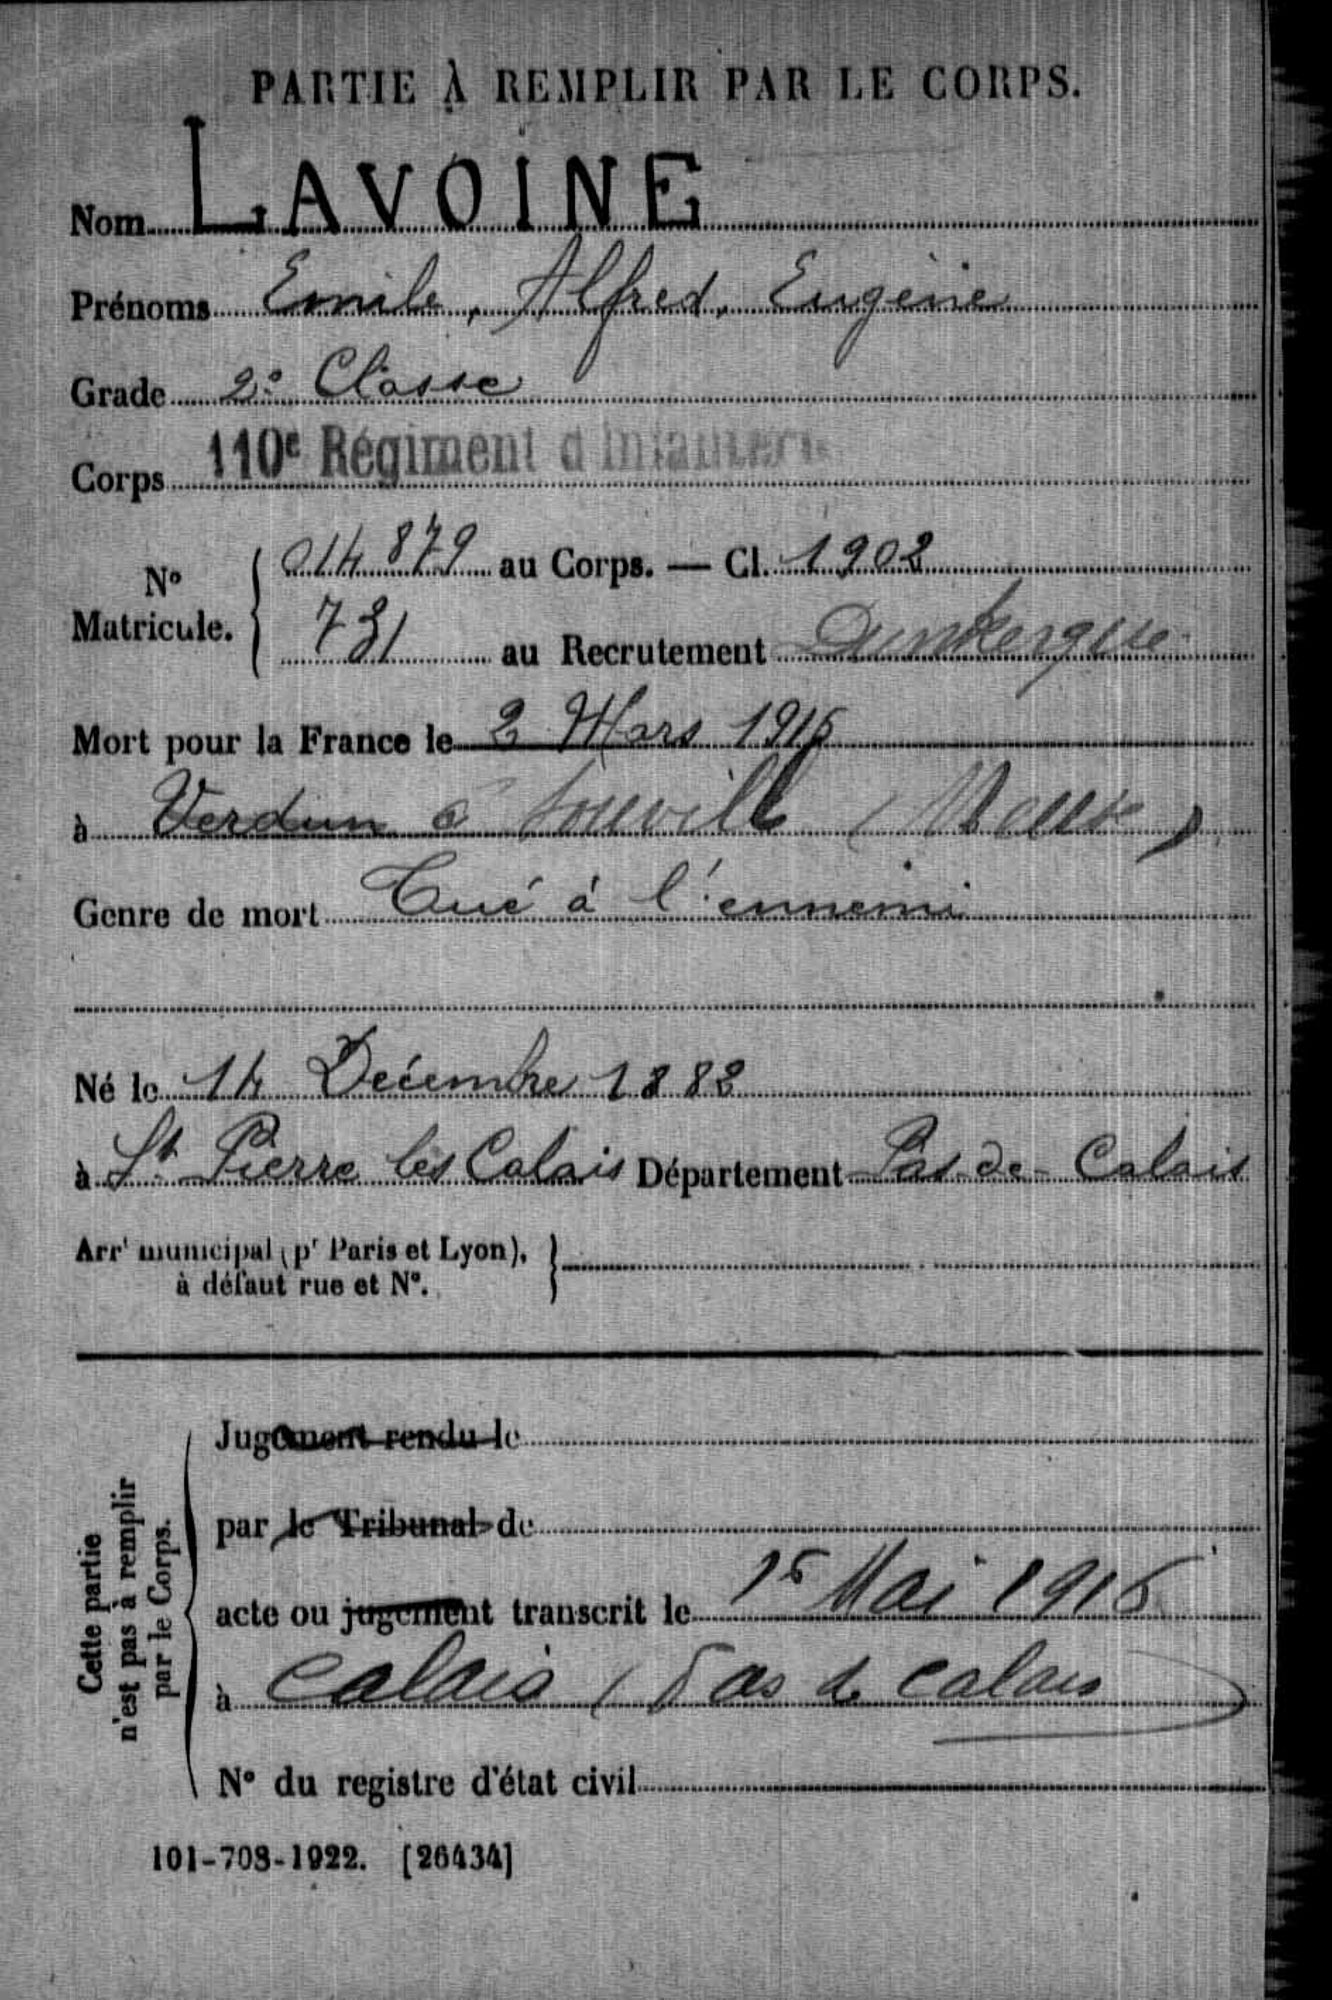 PARTIE À REMPLIR PAR LE CORPS.
Nom LAVOINE
Prénoms Emile, Alfred, Eugène
Grade 2e Classe
Corps 110e Régiment d'Infanterie
No Matricule. { 014 879 au Corps. — Cl. 1902
731 au Recrutement Dunkerque
Mort pour la France le 2 Mars 1916
à Verdun Souville (Meuse)
Genre de mort Tué à l'ennemi
Né le 14 Décembre 1882
à St Pierre les Calais Département Pas-de-Calais
Arrt municipal (pr Paris et Lyon), }
à défaut rue et No.
Cette partie
n'est pas à remplir
par le Corps.
Jugement rendu le
par le Tribunal de
acte ou jugement transcrit le 15 Mai 1916
à Calais (Pas de Calais
No du registre d'état civil
101-708-1922. [26434]